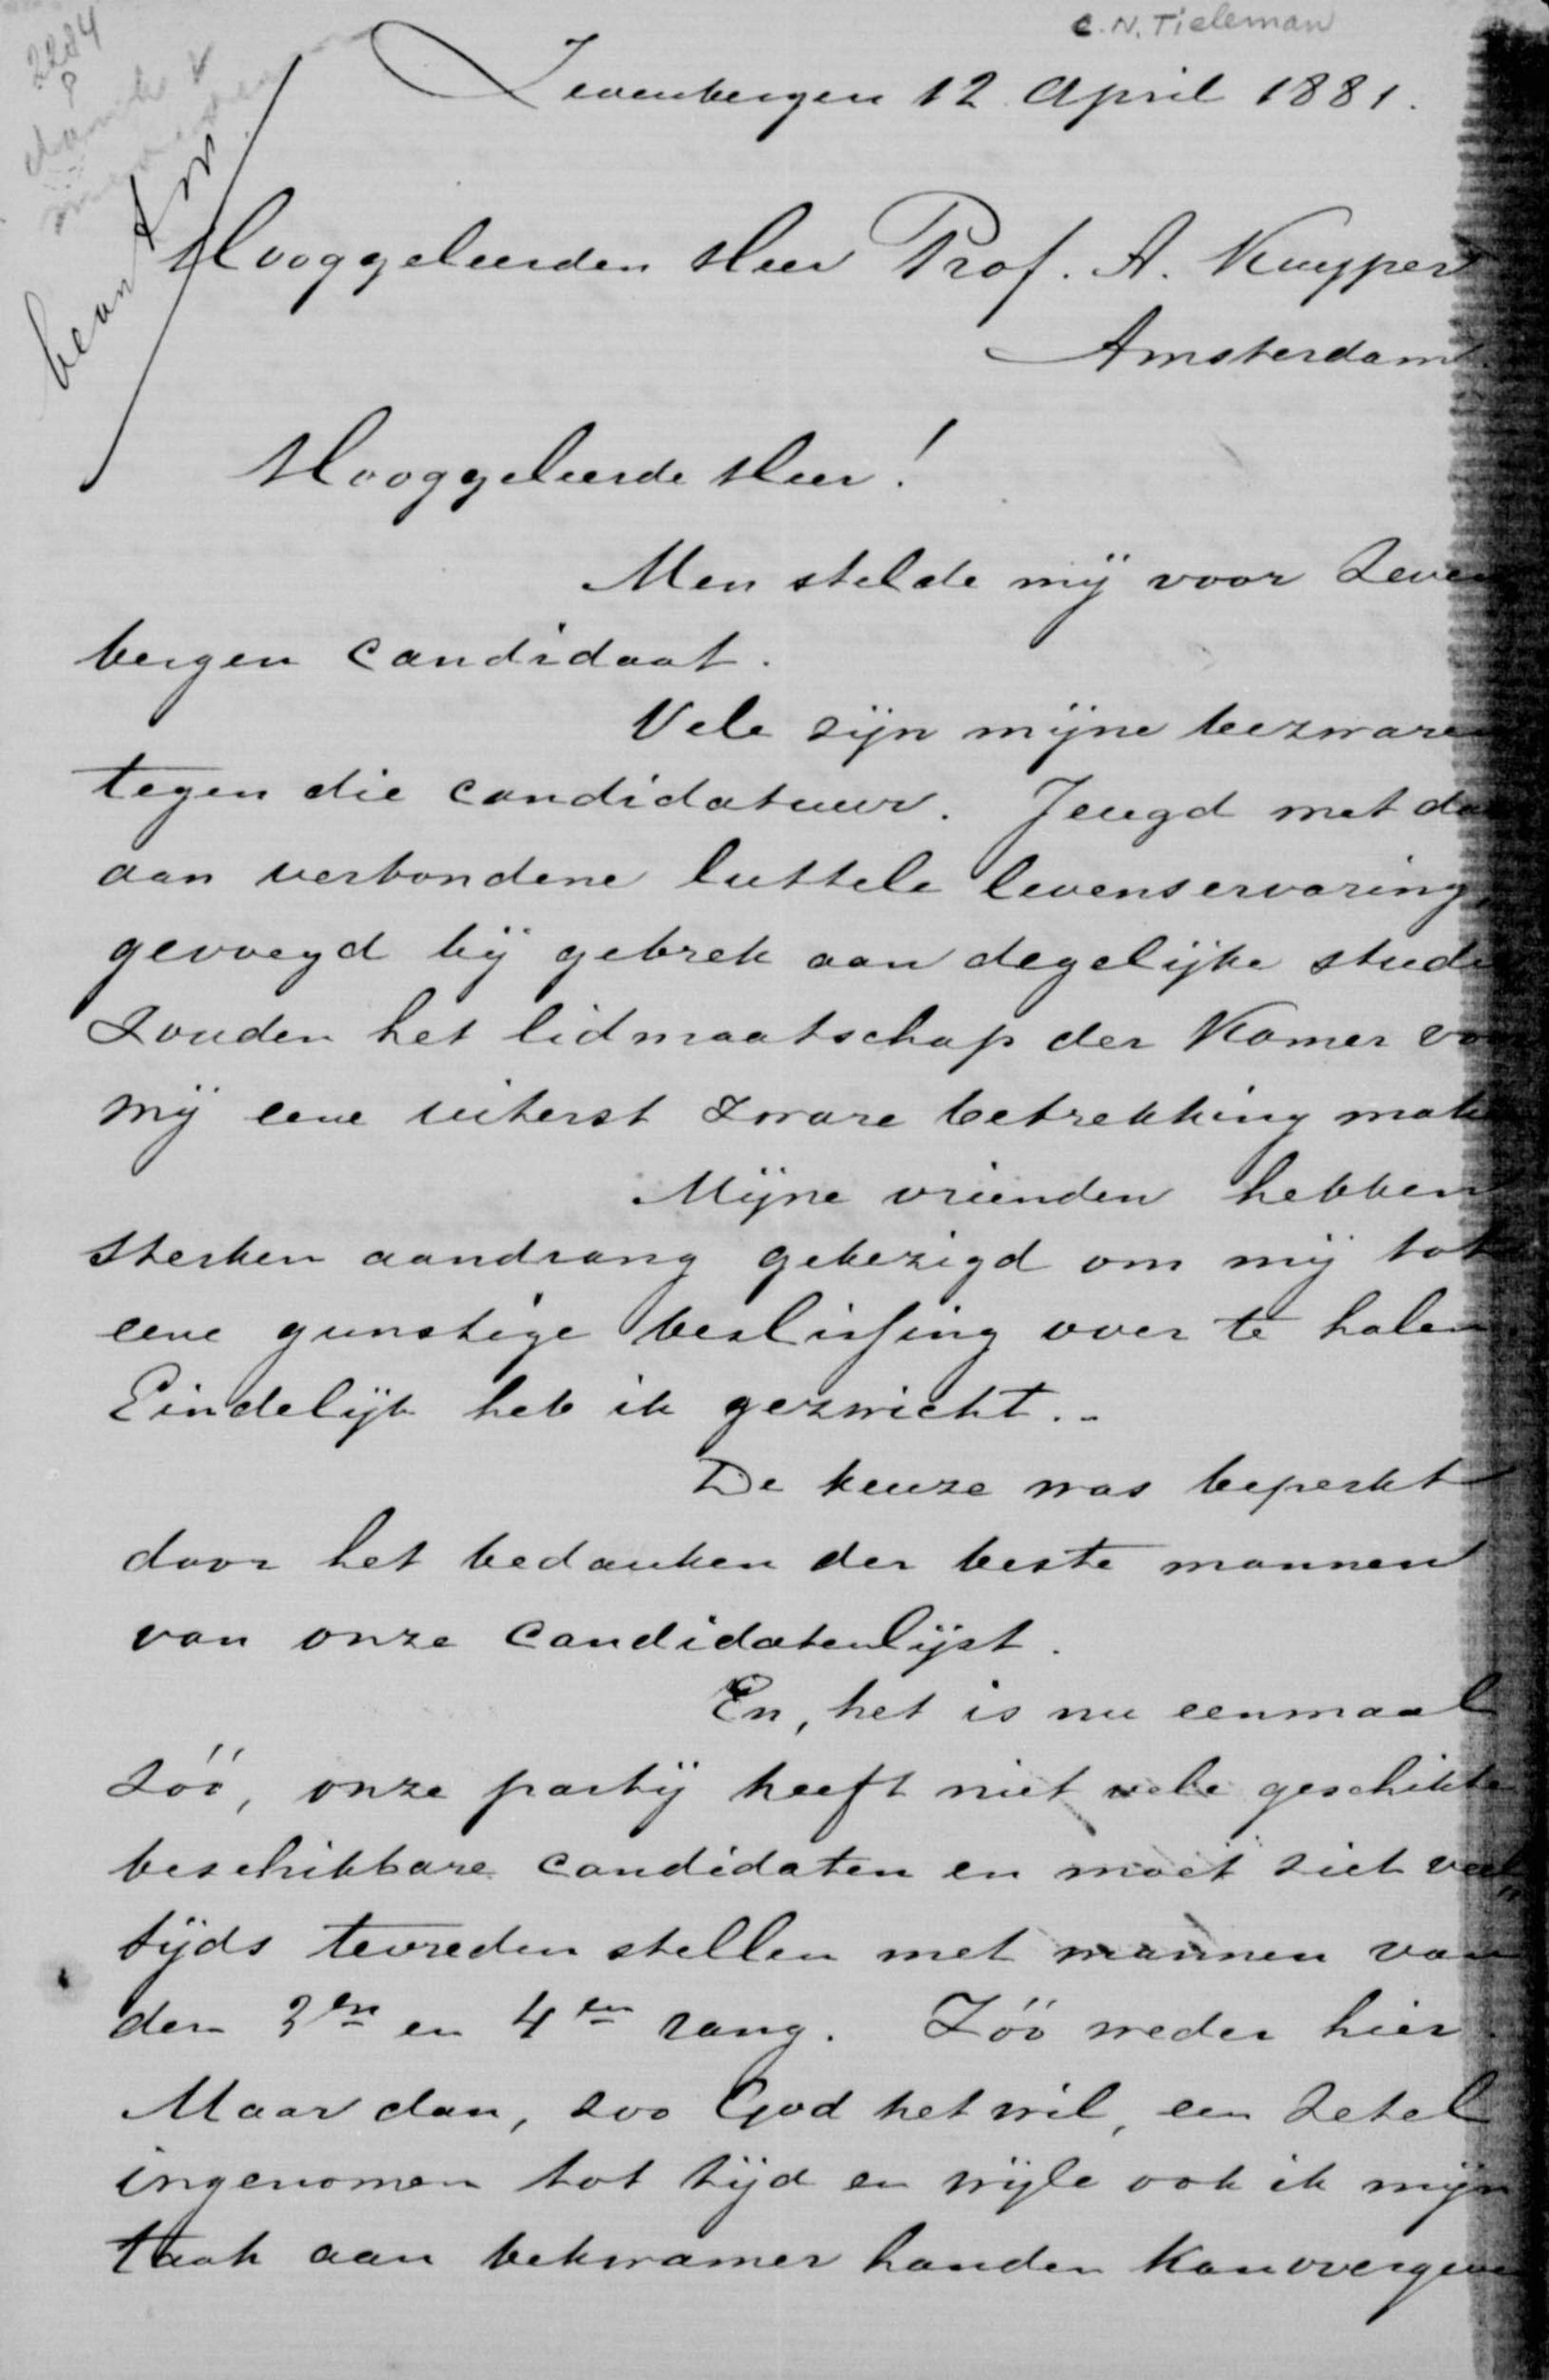 C.N. Tieleman
2284
P
Zevenbergen 12 April 1881.
beantw.
Hooggeleerden Heer Prof. A. Kuyper
Amsterdam.
Hooggeleerde Heer!
Men stelde mij voor Zeven
bergen candidaat.
Vele zijn mijne bezwaren
tegen die candidatuur. Jeugd met da
aan verbondene luttele levenservaring,
gevoegd bij gebrek aan degelijke studi
Zouden het lidmaatschap der Kamer vo
mij eene uiterst zware betrekking make
Mijne vrienden hebben
sterken aandrang gebezigd om mij tot
eene gunstige beslissing over te halen
Eindelijk heb ik gezwicht..
De keuze was beperkt
door het bedanken der beste mannen
van onze candidatenlijst.
En, het is nu eenmaal
zóó, onze partij heeft niet vele geschikte
beschikbare candidaten en moet zich veel„
tijds tevreden stellen met mannen van
den 3en en 4en rang. Zóó weder hier.
Maar dan, zoo God het wil, een Zetel
ingenomen tot tijd en wijle ook ik mijn
taak aan bekwamer handen kan overgeve